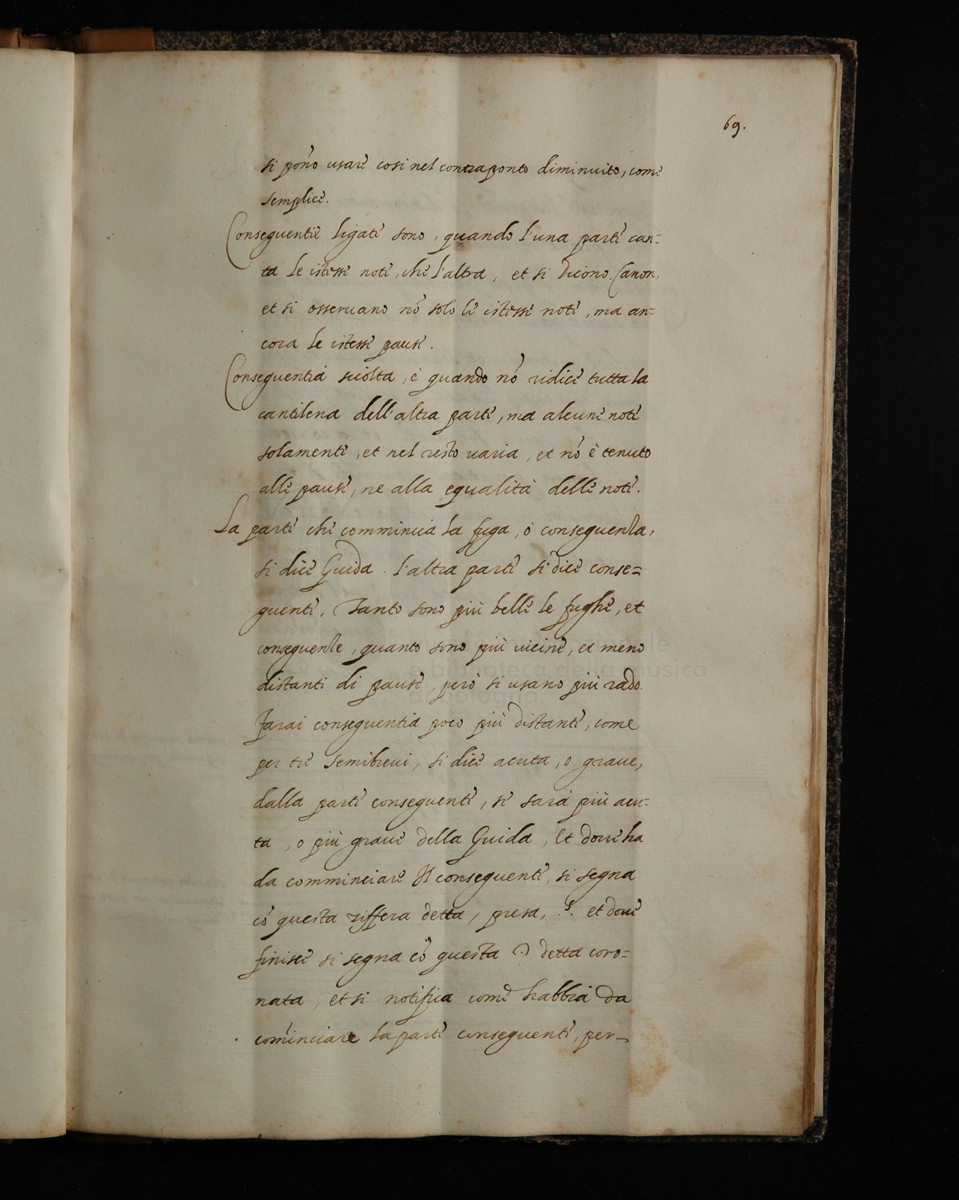 69.
si poño usare cosi nel contraponto diminuito, come
semplice.
Conseguentie ligate sono, quando l'una parte can-
ta le istesse note, che l'altra, et si dicono Canon,
et si osseruano nõ solo le istesse note, ma an-
cora le istesse pause.
Conseguentia sciolta, è quando nõ ridice tutta la
cantilena dell'altra parte, ma alcune note
solamente, et nel resto uaria, et nõ è tenuto
alle pause, ne alla equalità delle note.
La parte che commincia la fuga, o conseguenza,
si dice Guida. l'altra parte si dice conse-
guente. Tanto sono più belle le fughe, et
conseguenze, quanto sono più uicine, et meno
distanti di pause, però si usano più rado.
Farai conseguentia poco più distante, come
per tre Semibreui, si dice acuta, o graue,
dalla parte conseguente, se sarà più acu-
ta, o più graue della Guida, Et doue ha
da comminciare Il conseguente, si segna
cõ questa ziffera detta, presa, .S. et doue
finisce si segna cõ questa detta coro-
nata, et si notifica come habbia da
com̃inciare la parte conseguente, per